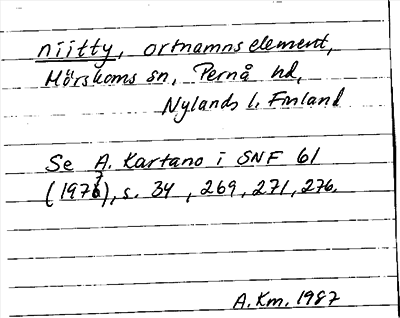 niitty, ortnamnselement,
Mörskoms sn, Pernå hd,
Nylands l, Finland
Se A. Kartano i SNF 61
(1973), s. 34, 269, 271, 276.
A.Km. 1987